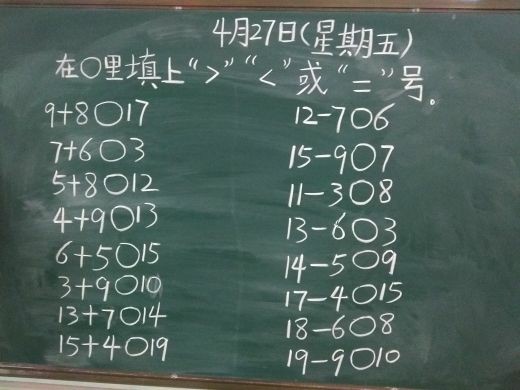 4月27日(星期五)
在○里填上“>”“<”或“=”号。
9+8○17
7+6○3
5+8○12
4+9○13
6+5○15
3+9○10
13+7○14
15+4○19
12-7○6
15-9○7
11-3○8
13-6○3
14-5○9
17-4○15
18-6○8
19-9○10